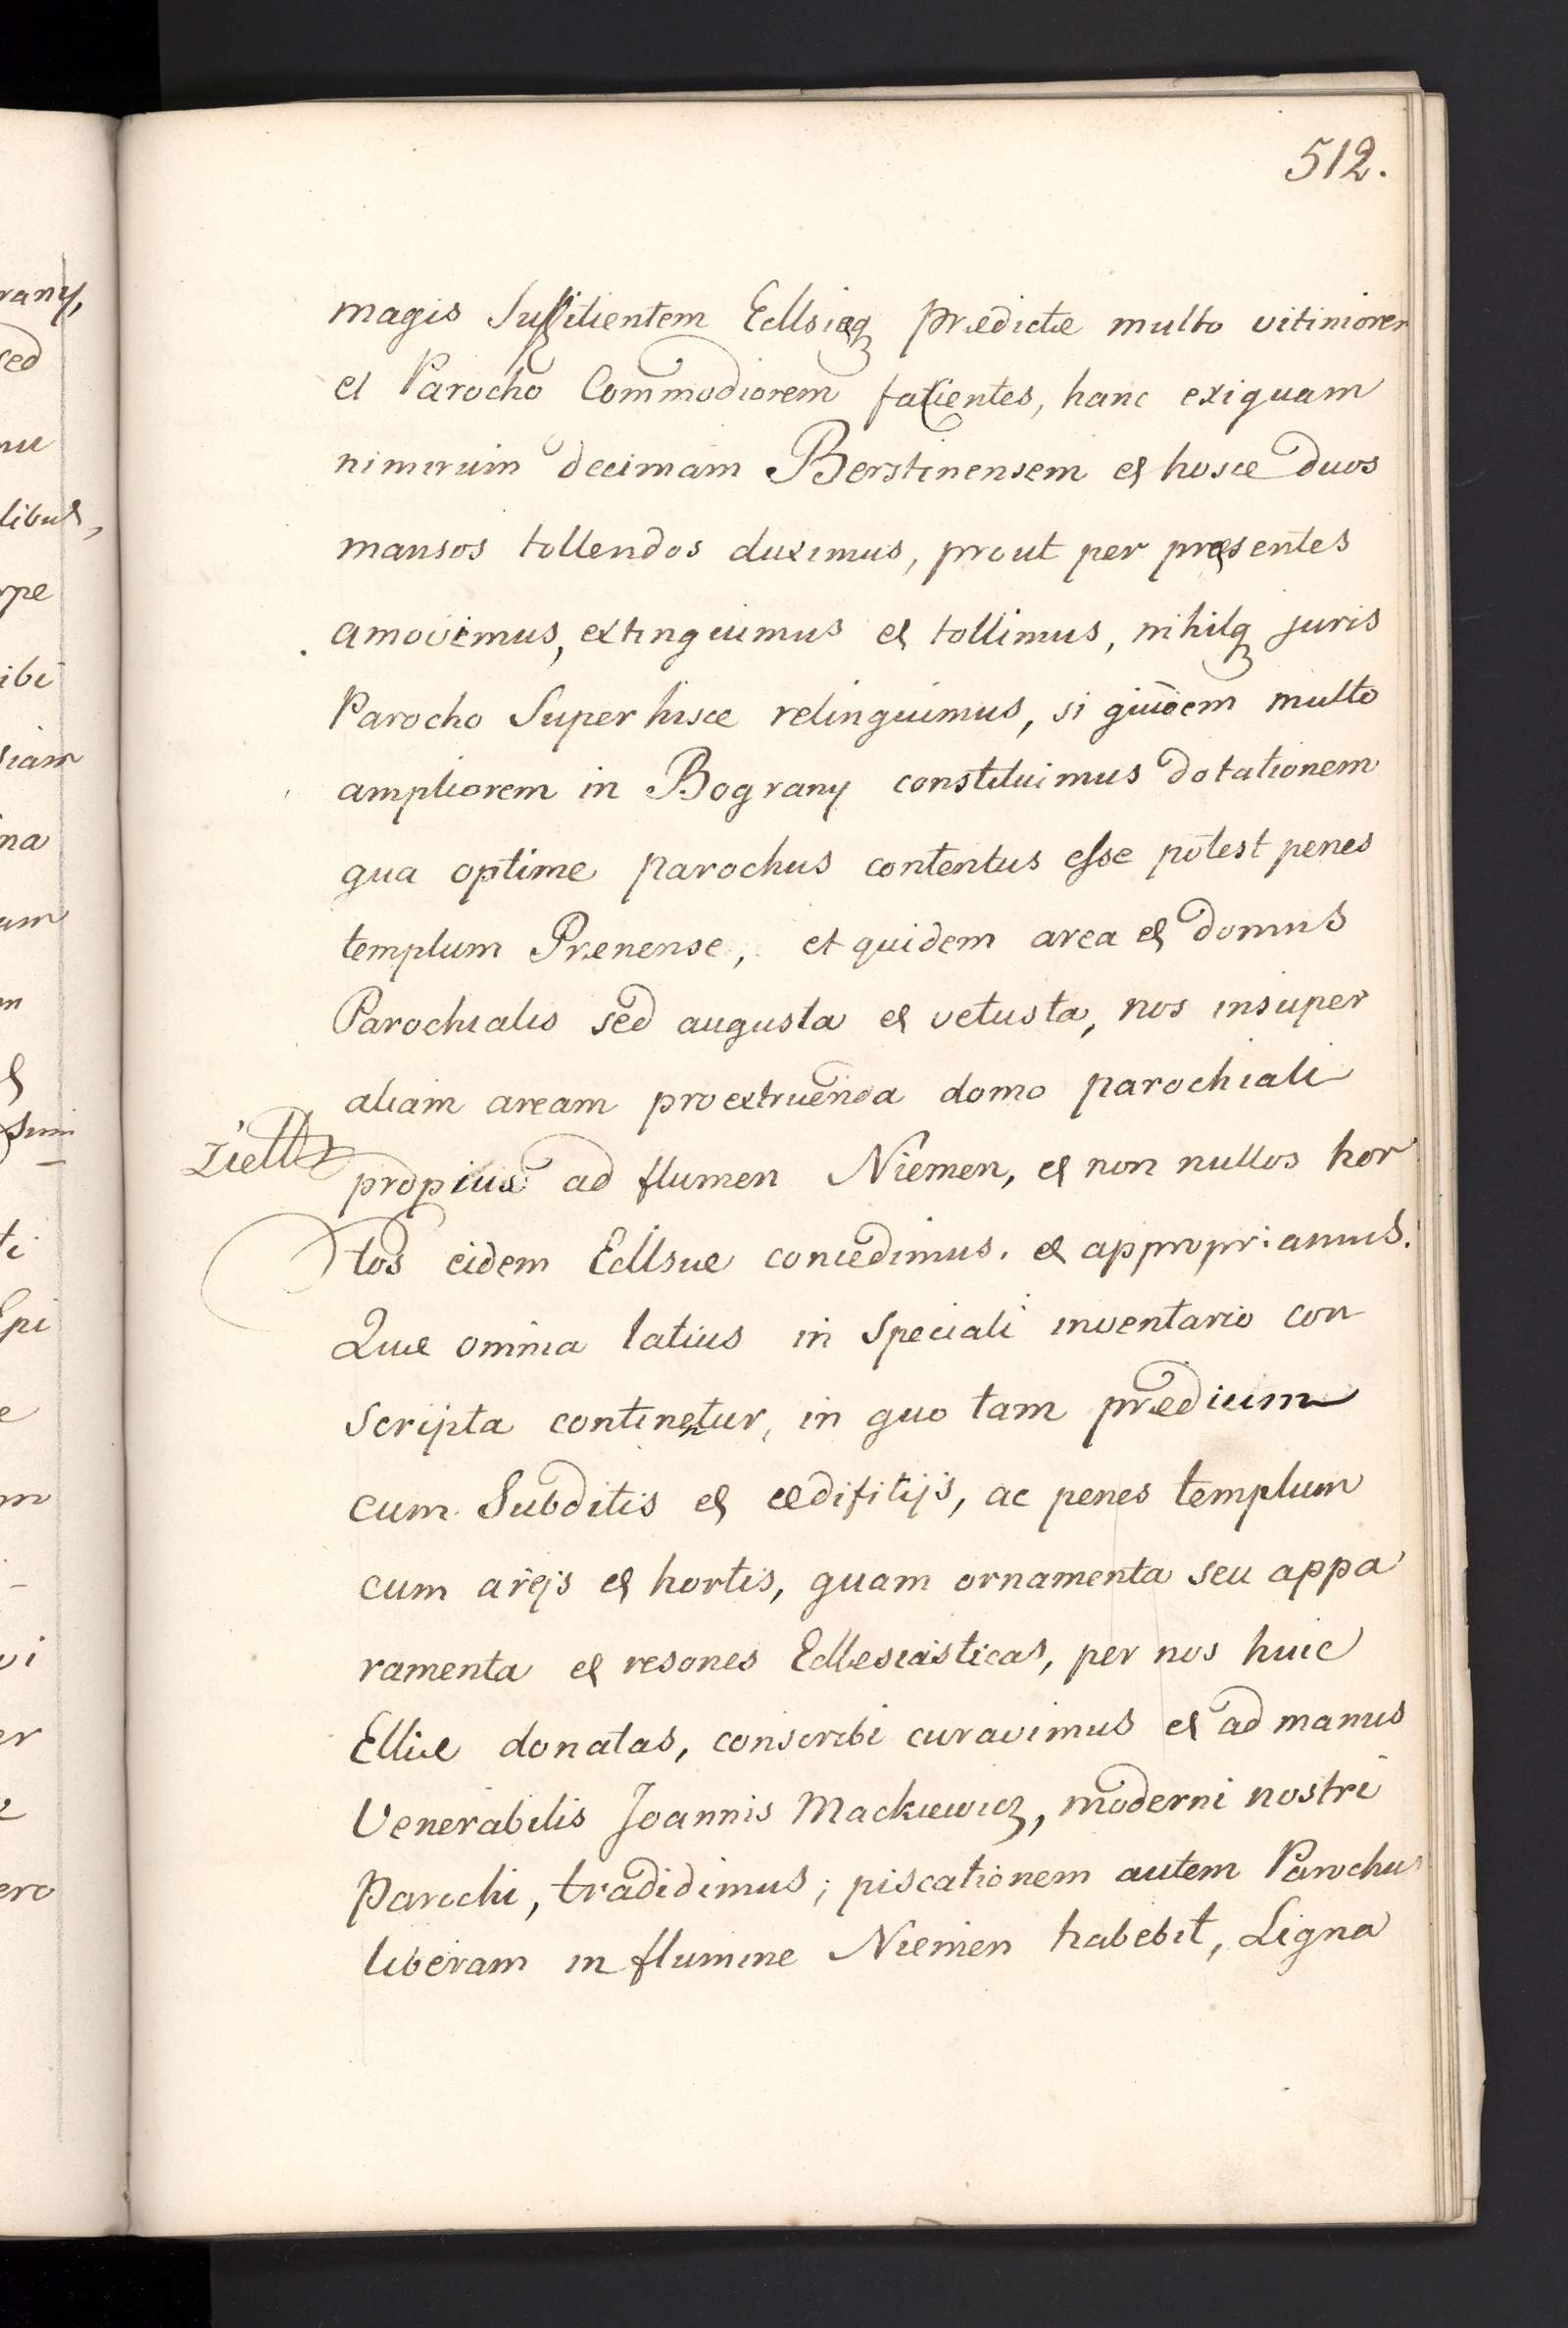 512.
magis Suffitientem Ecllsiæq prædictæ multo vitiniorem
et Parocho Commodiorem facientes, hanc exiguam
nimirum decimam Berstinensem et hosce duos
mansos tollendos duximus, prout per præsentes
amovemus, extinguimus et tollimus, nihilq juris
Parocho Super hisce relinquimus, si quidem multo
ampliorem in Bograny constituimus dotationem
qua optime parochus contentus esse potest penes
templum Prenense, et quidem area et domus
Parochialis sed augusta et vetusta, nos insuper
aliam aream pro extruenda domo parochiali
propius ad flumen Niemen, et non nullos hor
tos eidem Ecllsiæ concedimus. et appropriamus.
Quæ omnia latius in Speciali inventario con
scripta continentur, in quo tam prædium
cum Subditis et ædifitijs, ac penes templum
cum areis et hortis, quam ornamenta seu appa
ramenta et resones Ecllesiasticas, per nos huic
Elliæ donatas, conscribi curavimus et ad manus
Venerabilis Joannis Mackiewicz, moderni nostri
Parochi, tradidimus; piscationem autem Parochus
liberam in flumine Niemen habebit, Ligna